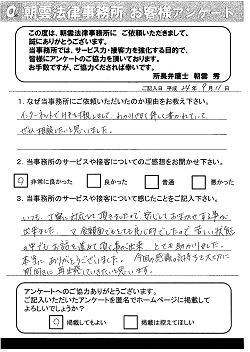 朝雲法律事務所 お客様アンケート
この度は、朝雲法律事務所に ご依頼いただきまして、
誠にありがとうございます。
当事務所では、サービス力・接客力を強化する目的で、
皆様にアンケートのご協力を頂いております。
お手数ですが、ご協力くだされば幸いです。
所長弁護士 朝雲 秀
ご記入日 平成 24 年 9 月 11 日
1. なぜ当事務所にご依頼いただいたのか理由をお教え下さい。
インターネットで わかりやすく 書かれていて、
ぜひ相談したいと思いました。
2. 当事務所のサービスや接客についてのご感想をお聞かせ下さい。
非常に良かった 良かった 普通 悪かった
3. 当事務所のサービスや接客について感じたことをご記入下さい。
いつも、丁寧に対応して頂きましたので、安心しておまかせする事が
出来ました。
お話を進めて頂く事が出来、とても助かりました。
本当にありがとうございました。今回の感謝の気持ちを大切に
前向きに再出発していきたいと思います。
アンケートへのご協力ありがとうございます。
ご記入いただいたアンケートを匿名でホームページに掲載して
よろしいでしょうか?
掲載してもよい 掲載は控えてほしい